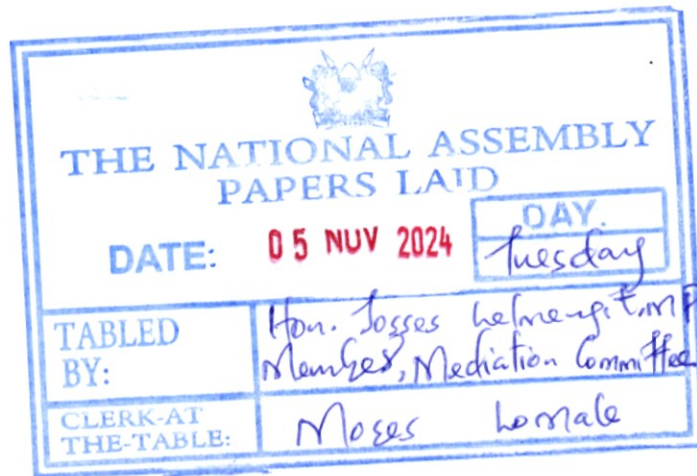 THE NATIONAL ASSEMBLY
PAPERS LAID
DATE: 05 NOV 2024
DAY.
Tuesday
TABLED BY:
Hon. Josses Lelmengit, MP
Member, Mediation Committee
CLERK-AT THE-TABLE:
Moses Lomale